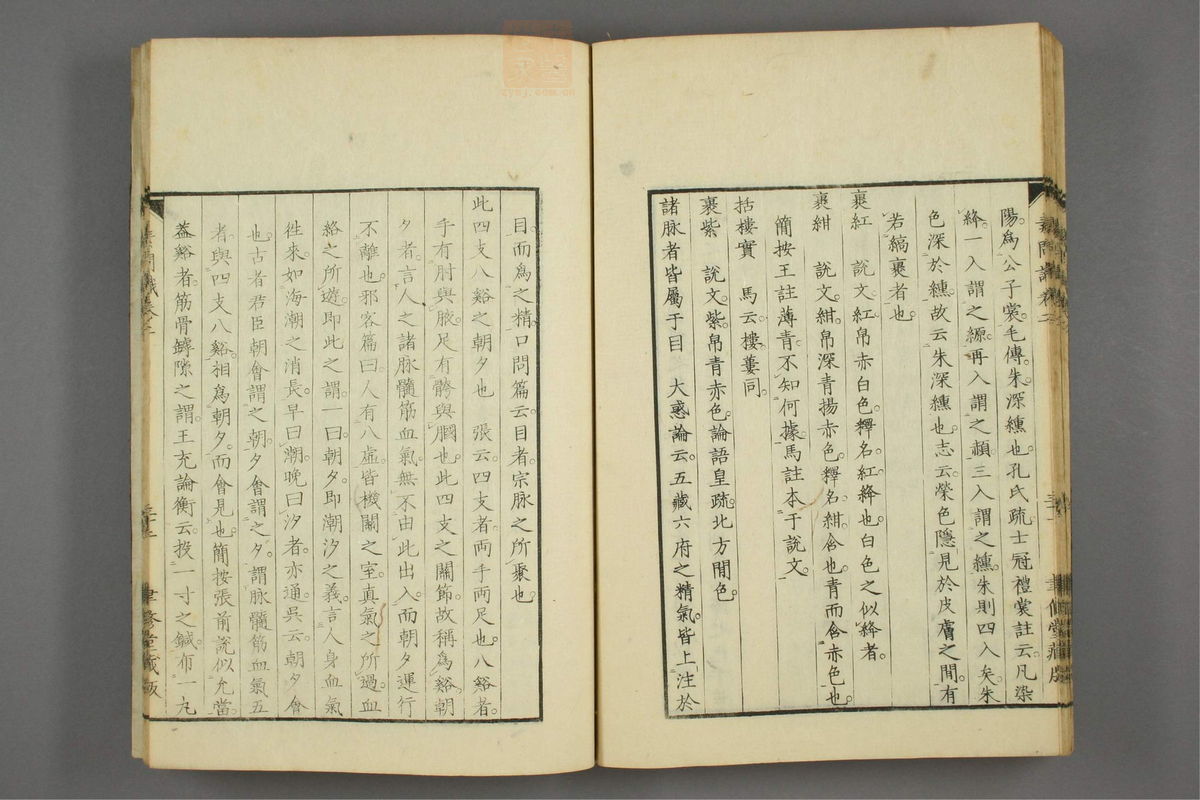 陽。爲公子裳。毛傳。朱深纁也。孔氏疏。士冠禮裳註云。凡染
絳。一入謂之縓。再入謂之赬。三入謂之纁。朱則四入矣。朱
色深於纁。故云朱深纁也。志云。榮色隱見於皮膚之間。有
若縞裹者也。
裹紅　說文。紅。帛赤白色。釋名。紅。絳也。白色之似絳者。
裹紺　說文。紺。帛深青揚赤色。釋名。紺。含也。青而含赤色也。
簡按王註薄青。不知何據。馬註本于說文。
括樓實　馬云。樓蔞同。
裹紫　說文。紫。帛青赤色。論語皇疏。北方間色。
諸脉者皆屬于目　大惑論云。五藏六府之精氣。皆上注於
目。而爲之精。口問篇云。目者宗脉之所聚也。
此四支八谿之朝夕也　張云。四支者。兩手兩足也。八谿者。
手有肘與腋。足有骻與膕也。此四支之關節。故稱爲谿。朝
夕者。言人之諸脉髓筋血氣。無不由此出入。而朝夕運行
不離也。邪客篇曰。人有八虛。皆機關之室。真氣之所過。血
絡之所遊。即此之謂。一曰。朝夕。即潮汐之義。言人身血氣
徃來。如海潮之消長。早曰潮。晚曰汐者。亦通。吳云。朝夕會
也。古者君臣朝會謂之朝。夕會謂之夕。謂脉髓筋血氣五
者。與四支八谿。相爲朝夕。而會見也。簡按張前說似允當。
葢谿者。筋骨罅隙之謂。王充論衡云。投一寸之鍼。布一丸
素問識卷二
聿修堂藏版